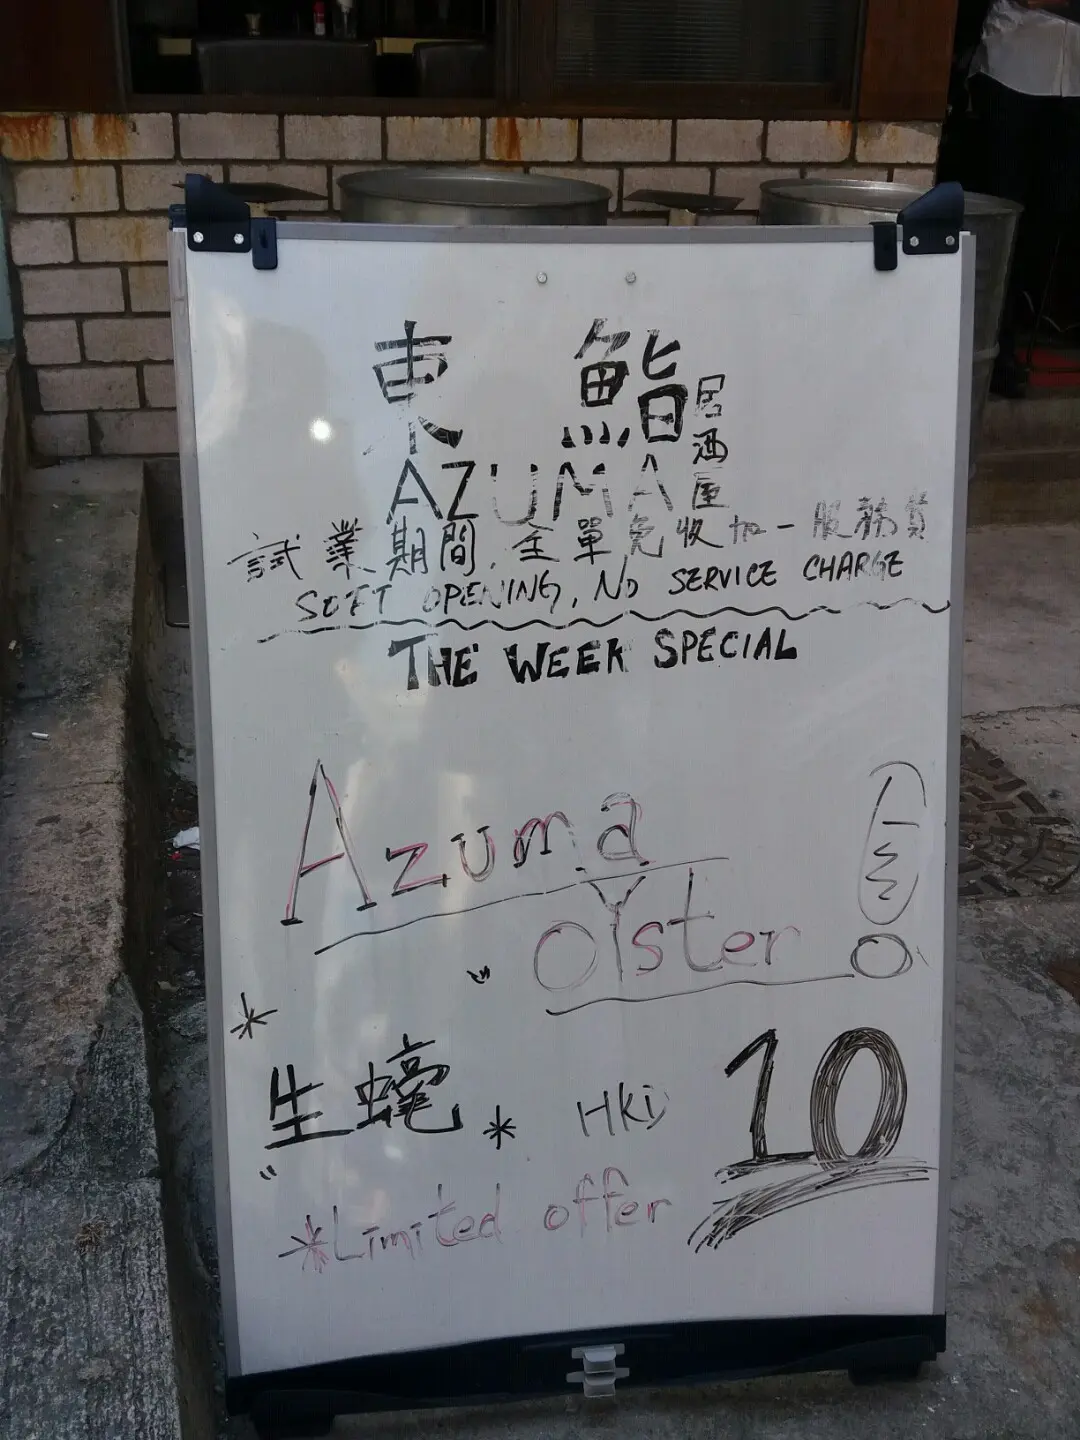 東 鮨 居酒屋
AZUMA
試業期間,全單免收加一服務費
SOFT OPENING, NO SERVICE CHARGE
THE WEEK SPECIAL
Azuma
Oyster
*
生蠔 * HK 10
*Limited offer